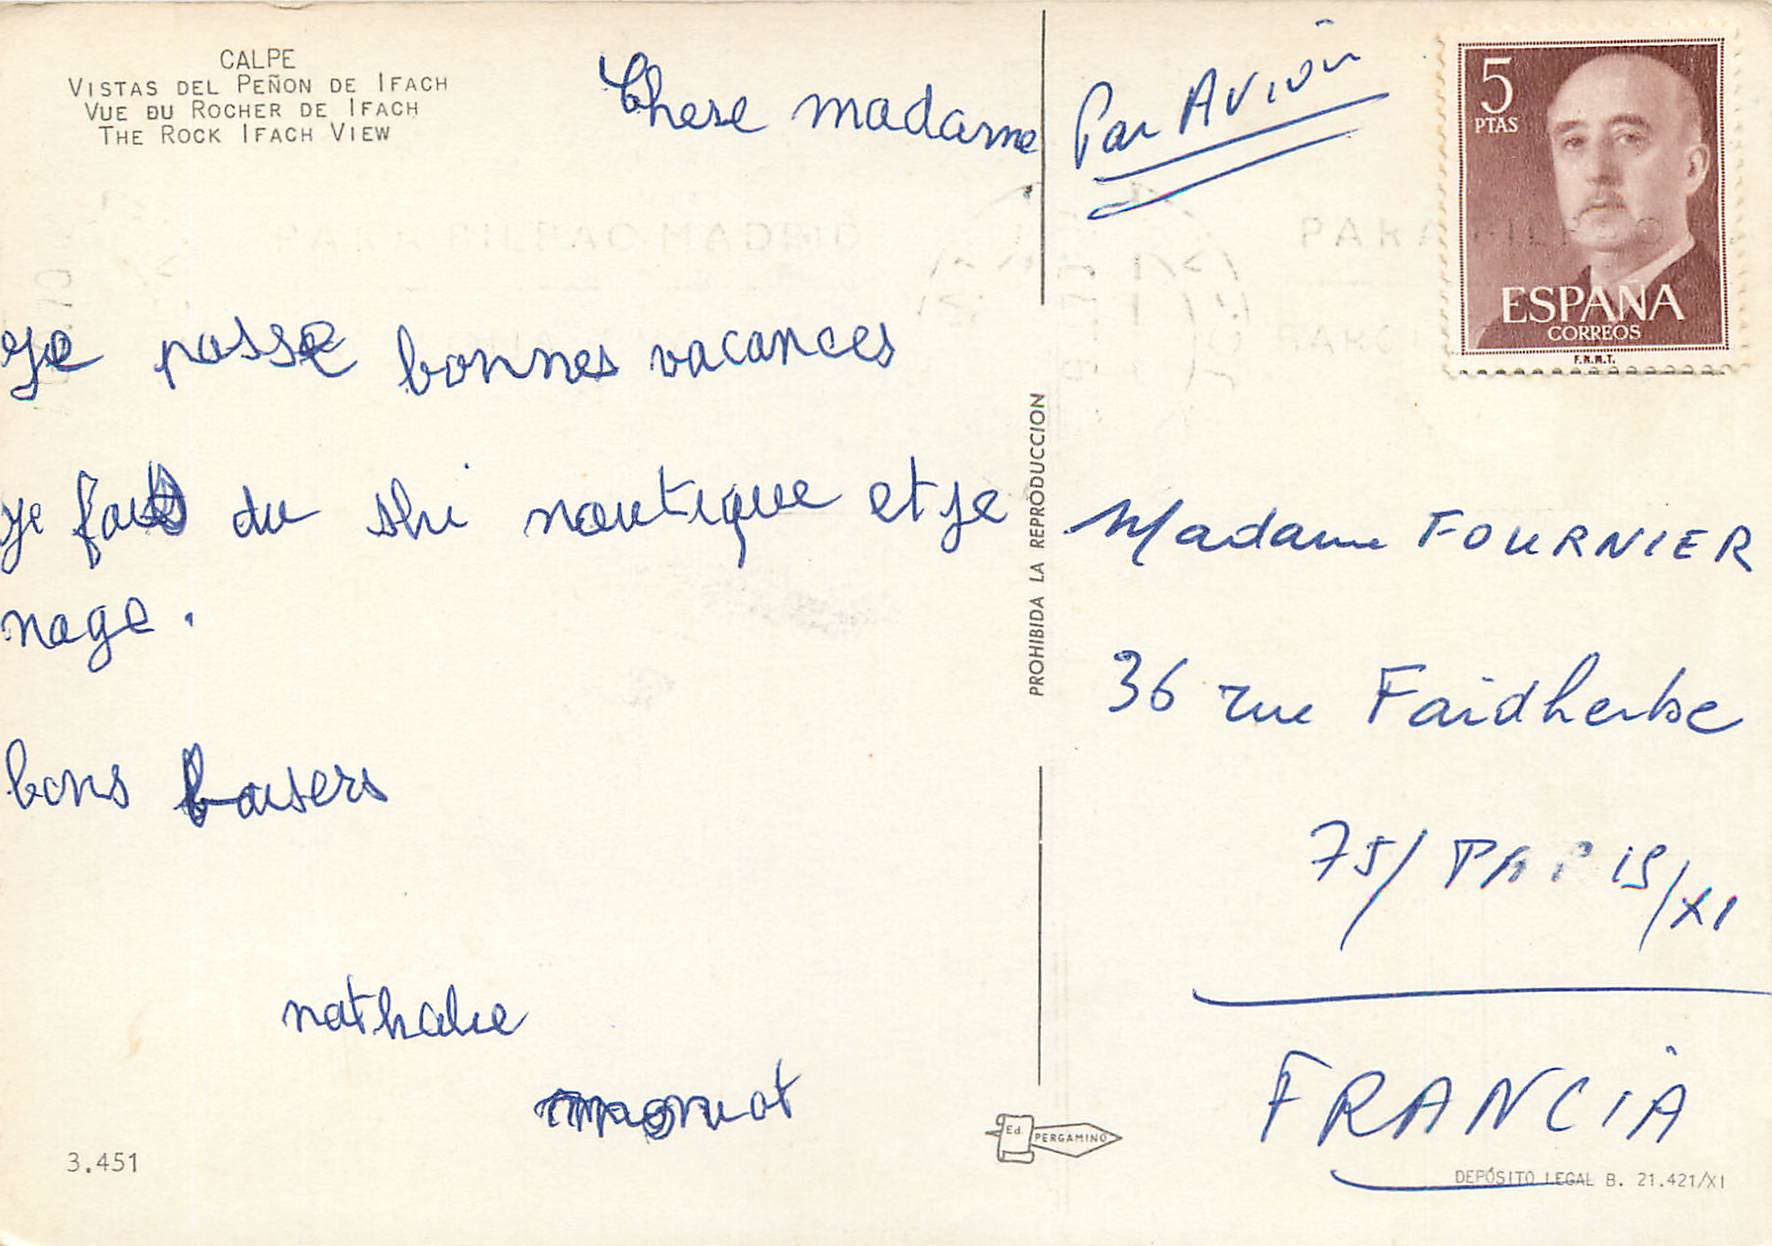 CALPE
VISTAS DEL PEÑON DE IFACH
VUE DU ROCHER DE IFACH
THE ROCK IFACH VIEW
Chere madame
je passe bonnes vacances
je fais du ski nautique et je
nage.
bons baisers
nathalie
3.451
PROHIBIDA LA REPRODUCCION
Ed. PERGAMINO
Par Avion
5
PTAS
ESPAÑA
CORREOS
F.N.M.T.
PARA BILBAO MADRID
PARA BILBAO
Madame FOURNIER
36 rue Faidherbe
75/ PARIS/XI
FRANCIA
DEPÓSITO LEGAL B. 21.421/XI